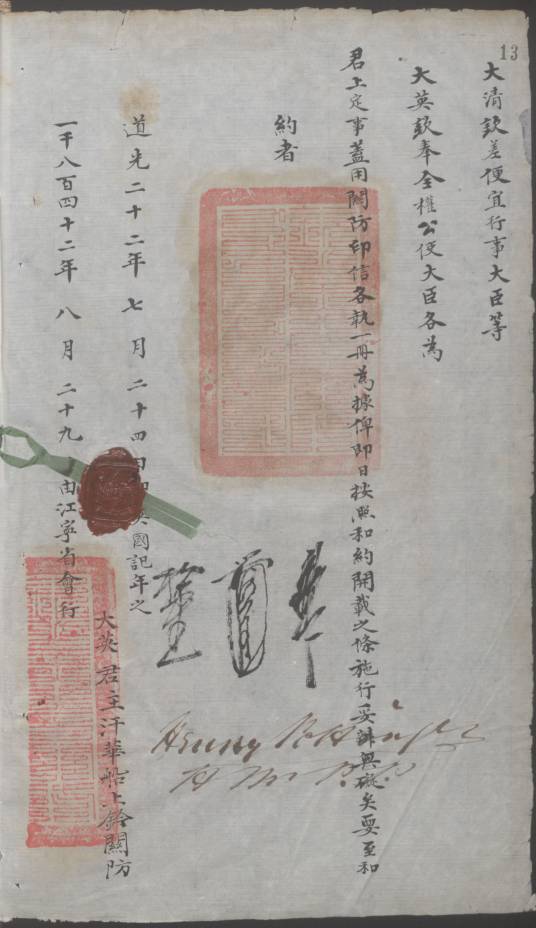 13
大清欽差便宜行事大臣等
大英欽奉全權公使大臣各為
君上定事蓋用關防印信各執一冊為據俾即日按照和約開載之條施行妥辦無礙矣要至和
約者
道光二十二年七月二十四日即英國記年之
一千八百四十二年八月二十九日由江寧省會行
大英君主汗華船上鈐關防
Henry Pottinger
H M P.P.